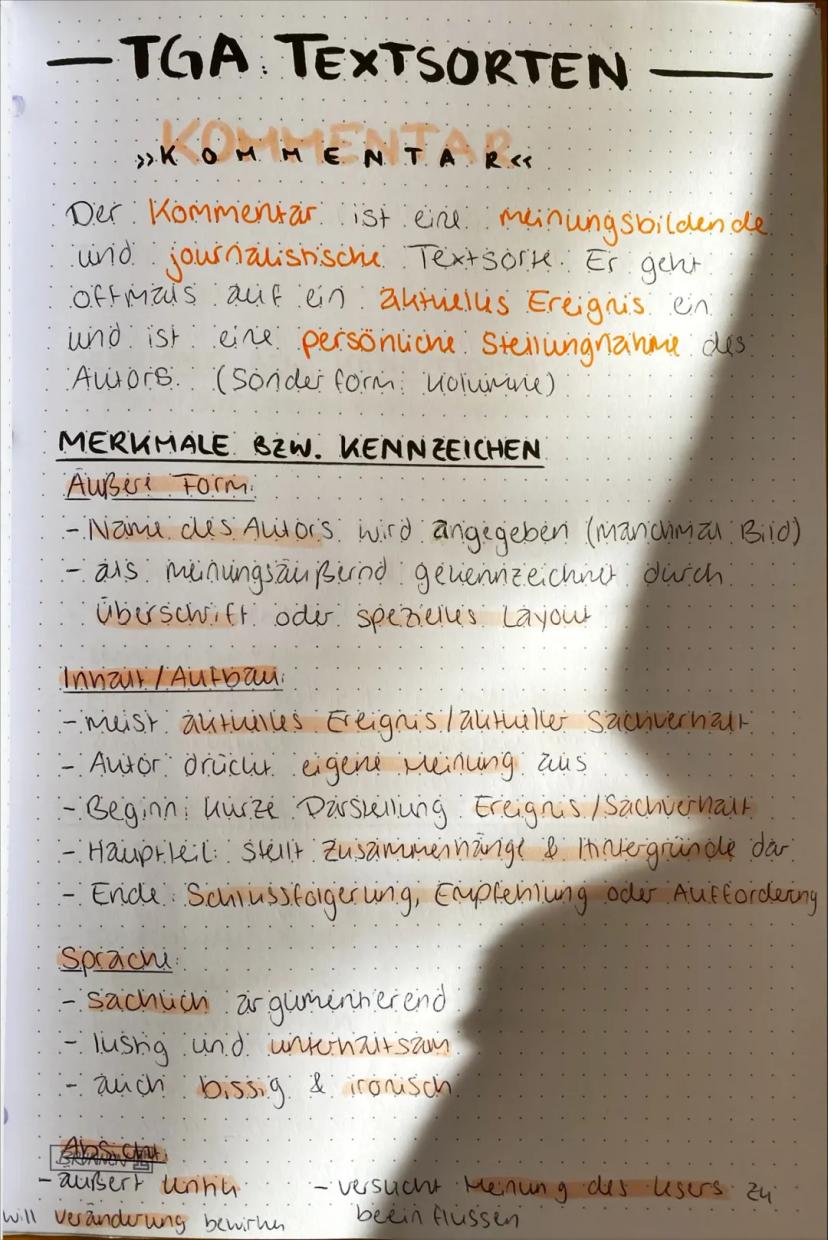 TGA: TEXTSORTEN
KOMMENTAR
»KOMMENTAR«
Der Kommentar ist eine meinungsbildende
und journalistische Textsorte. Er geht
oftmals auf ein aktuelles Ereignis ein
und ist eine persönliche Stellungnahme des
Autors. (Sonderform: Kolumne)
MERKMALE BZW. KENNZEICHEN
Äußere Form:
- Name des Autors wird angegeben (manchmal Bild)
- als meinungsäußernd gekennzeichnet durch
Überschrift oder spezielles Layout
Inhalt/Aufbau:
- meist aktuelles Ereignis/aktueller Sachverhalt
- Autor drückt eigene Meinung aus
- Beginn: kurze Darstellung Ereignis/Sachverhalt
- Hauptteil: stellt Zusammenhänge & Hintergründe dar
- Ende: Schlussfolgerung, Empfehlung oder Aufforderung
Sprache:
- sachlich argumentierend
- lustig und unterhaltsam
- auch bissig & ironisch
Absicht:
BRUNNEN
- äußert Kritik - versucht Meinung des Lesers zu
will Veränderung bewirken beeinflussen